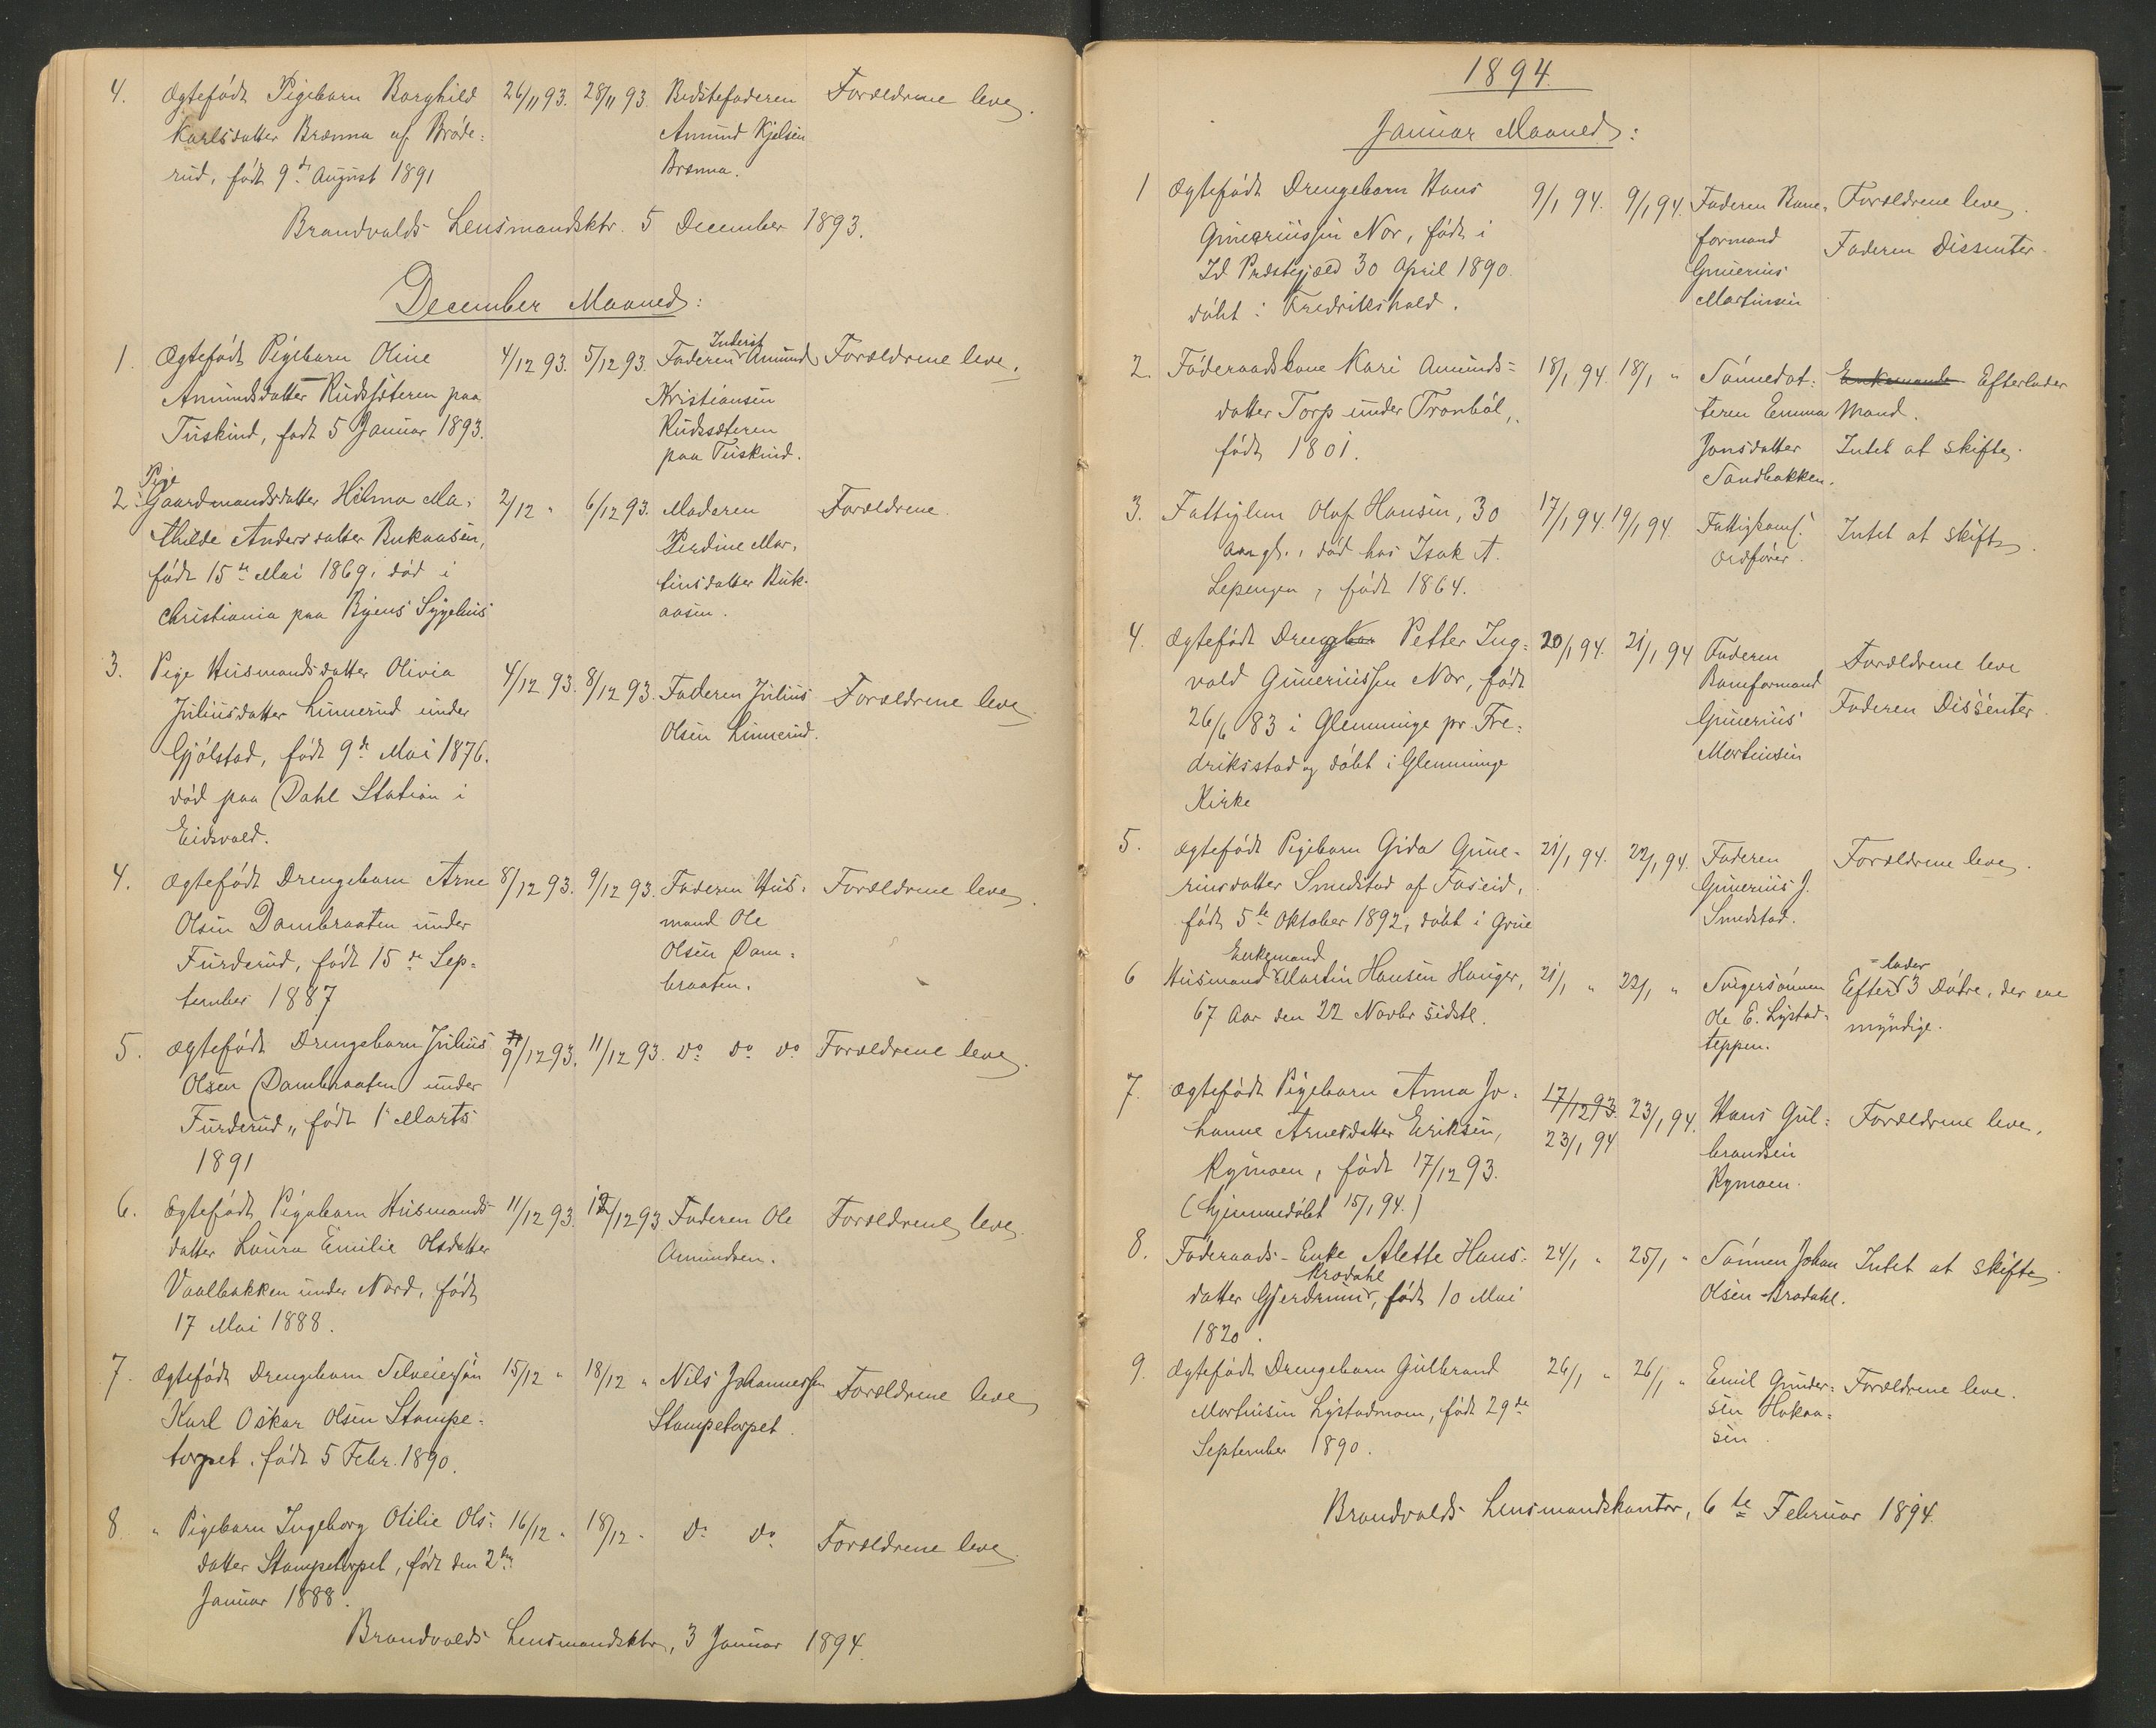 4. Ægtefødt Pigebarn Borghild 26/11 93. 28/11 93. Bedstefaderen Forældrene leve.
Karlsdatter Brænna af Brøde- Amund Kjelsen
rud, født 9de August 1891 Brænna.
Brandvolds Lensmandsktr. 5 December 1893.
December Maaned:
1. Ægtefødt Pigebarn Oline 4/12 93. 5/12 93. Faderen Inderst Amund Forældrene leve.
Amundsdatter Rudssæteren paa Kristiansen
Tuskind, født 5 Januar 1893. Rudssæteren
paa Tuskind.
2. Pige Gaardmandsdatter Hilma Ma- 2/12 " 6/12 93. Moderen Forældrene.
thilde Andersdatter Bukaasen, Perdine Mar-
født 15de Mai 1869, død i tinsdatter Buk-
Christiania paa Byens Sygehus aasen.
3. Pige Husmandsdatter Olivia 4/12 93. 8/12 93. Faderen Julius Forældrene leve
Juliusdatter Linnerud under Olsen Linnerud.
Gjølstad, født 9de Mai 1876.
død paa Dahl Station i
Eidsvold.
4. Ægtefødt Drengebarn Arne 8/12 93. 9/12 93. Faderen Hus- Forældrene leve.
Olsen Dambraaten under mand Ole
Furderud, født 15de Sep- Olsen Dam-
tember 1887 braaten.
5. Ægtefødt Drengebarn Julius 9/12 93. 11/12 93. do do do Forældrene leve.
Olsen Dambraaten under
Furderud,, født 1 Marts
1891
6. Ægtefødt Pigebarn Husmands- 11/12 93. 12/12 93 Faderen Ole Forældrene leve.
datter Laura Emilie Olsdatter Amundsen.
Vaalbakken under Nord, født
17 Mai 1888.
7. Ægtefødt Drengebarn Selveiersøn 15/12 " 18/12 " Nils Johannessen Forældrene leve
Karl Oskar Olsen Stampe- Stampetorpet.
torpet, født 5 Febr. 1890.
8. " Pigebarn Ingeborg Otilie Ols- 16/12 " 18/12 " do do Forældrene leve.
datter Stampetorpet, født den 2den
Januar 1888.
Brandvolds Lensmandsktr, 3 Januar 1894.
1894.
Januar Maaned:
1 Ægtefødt Drengebarn Hans 9/1 94. 9/1 94. Faderen Bane- Forældrene leve.
Guneriussen Nor, født i formand Faderen Dissenter.
Id Præstegjæld 30 April 1890. Gunerius
døbt i Fredrikshald. Martinsen
2. Føderaadskone Kari Amunds- 18/1 94. 18/1 " Sønnedat- Enkemand Efterlader
datter Torp under Tronbøl, teren Emma Mand.
født 1801. Jonsdatter Intet at skifte.
Sandbakken.
3. Fattiglem Olaf Hansen, 30 17/1 94. 19/1 94. Fattigkom: Intet at skifte.
Aar gl., død hos Isak A. Ordfører.
Lepengen, født 1864.
4. Ægtefødt Drengebar Petter Ing- 20/1 94. 21/1 94 Faderen Forældrene leve
vald Guneriussen Nor, født Baneformand Faderen Dissenter.
26/6 83 i Glemminge pr. Fre- Gunerius
driksstad og døbt i Glemminge Martinsen
Kirke
5. Ægtefødt Pigebarn Gida Gune- 21/1 94. 22/1 94. Faderen Forældrene leve.
riusdatter Smedstad af Faseid, Gunerius J.
født 5te Oktober 1892, døbt i Grue Smedstad.
6 Husmand Enkemand Martin Hansen Hanger, 21/1 " 22/1 " Svigersønnen Efterlader 3 Døtre, der ere
67 Aar den 22 Novbr sidstl. Ole E. Lystad- myndige.
teppen.
7. Ægtefødt Pigebarn Anna Jo- 17/12 93. 23/1 94. Hans Gul- Forældrene leve.
hanne Arnesdatter Eriksen, 23/1 94 brandsen
Rymoen, født 17/12 93. Rymoen.
(hjemmedøbt 15/1 94.)
8. Føderaads-Enke Alette Hans- 24/1 " 25/1 " Sønnen Johan Intet at skifte
datter Gjerdrum Brodahl, født 10 Mai Olsen Brodahl.
1820.
9. Ægtefødt Drengebarn Gulbrand 26/1 " 26/1 " Emil Gunder- Forældrene leve.
Martinsen Lystadmoen, født 29de sen Hokaa-
September 1890. sen.
Brandvolds Lensmandskontor, 6te Februar 1894.